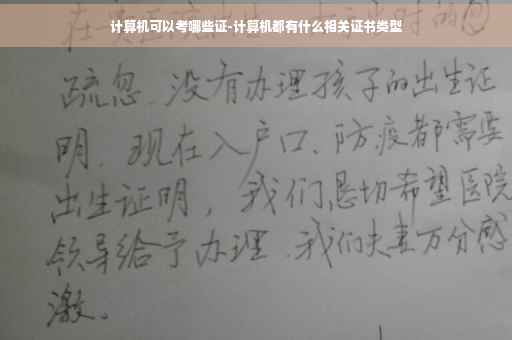 计算机可以考哪些证-计算机都有什么相关证书类型
疏忽、没有办理孩子的出生证
明、现在入户口、防疫都需要
出生证明，我们恳切希望医院
领导给予办理、我们夫妻万分感
激。